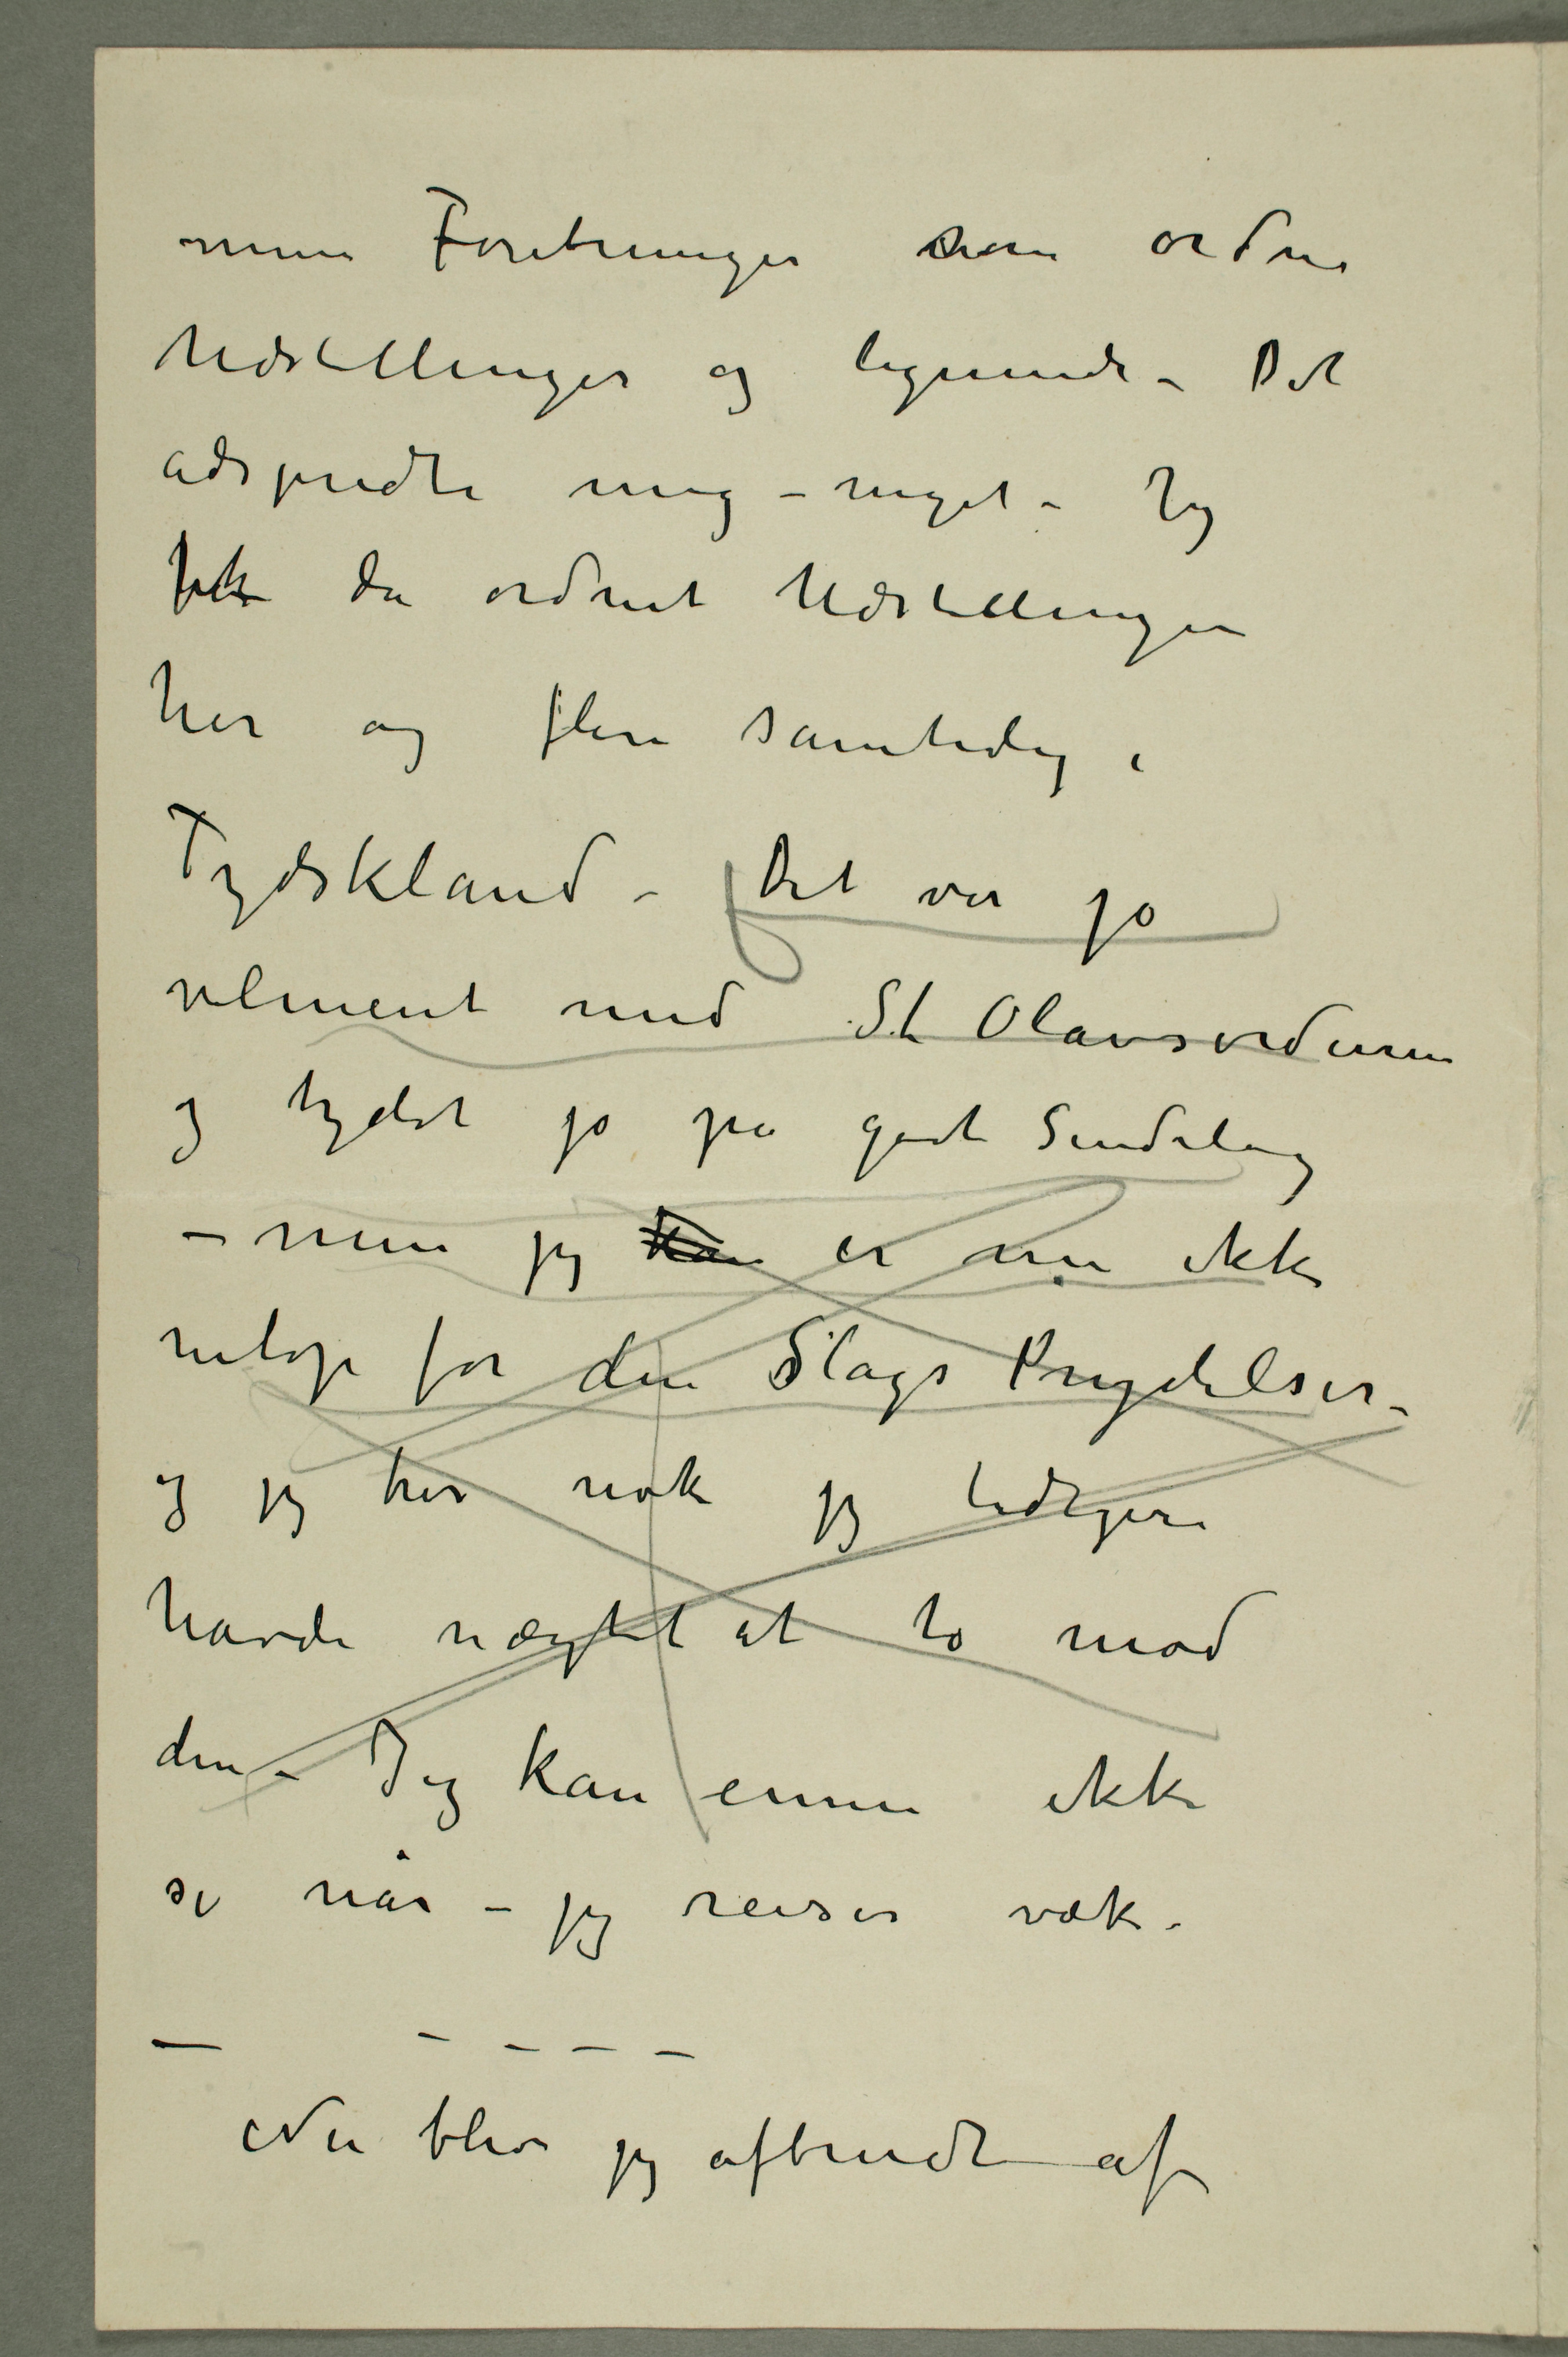 mine Foretninger som ordne
Udstillinger og lignende – Det
adspredte mig – meget – Jeg
fik da ordnet Udstillingen
her og flere samtidig i
Tydskland – Det var jo
velment med St Olavsordenen
og tydet jo på godt Sindelag
– men jeg kan er nu ikke
netop for den Slags Prydelser –
og jeg tror nok jeg tidligere
havde nægtet at ta mod
den – Jeg kan ennu ikke
si når – jeg reiser væk –
— – – – –
Nu blev jeg afbrudt af